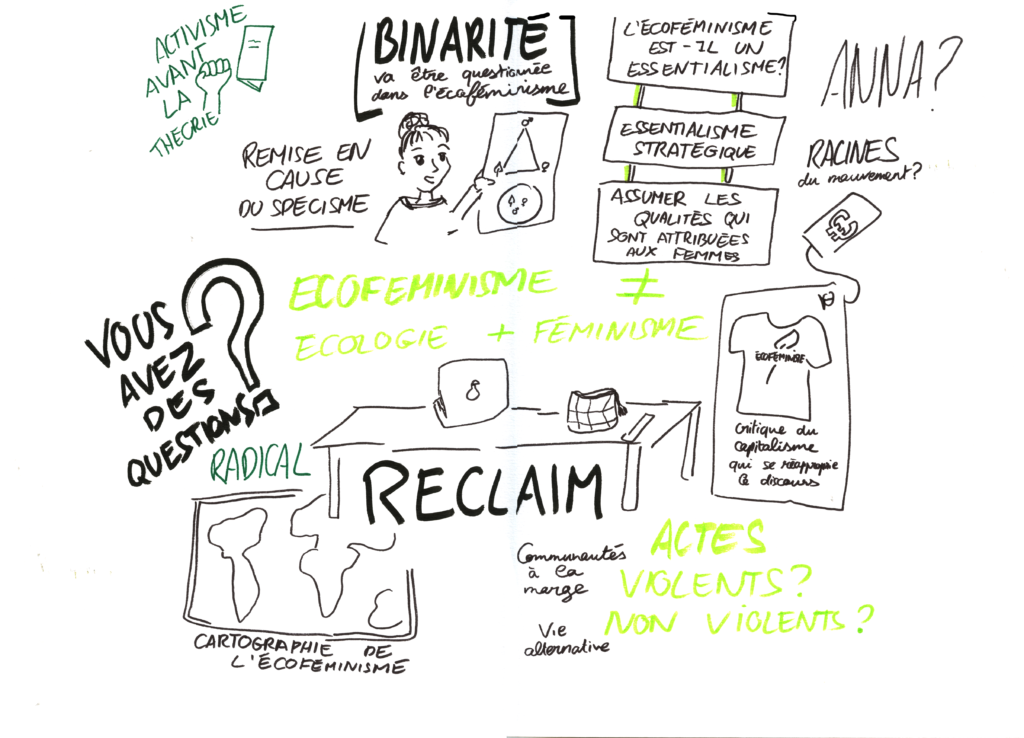 ACTIVISME
AVANT
LA
THEORIE
BINARITÉ
va être questionnée
dans l'écoféminisme
L'ÉCOFÉMINISME
EST-IL UN
ESSENTIALISME?
ESSENTIALISME
STRATÉGIQUE
ASSUMER LES
QUALITÉS QUI
SONT ATTRIBUÉES
AUX FEMMES
ANNA?
RACINES
du mouvement?
REMISE EN
CAUSE
DU SPÉCISME
ECOFEMINISME ≠
ECOLOGIE + FÉMINISME
VOUS
AVEZ
DES
QUESTIONS?
ECOFÉMINISME
critique du
capitalisme
qui se réapproprie
ce discours
RADICAL
RECLAIM
CARTOGRAPHIE DE
L'ÉCOFÉMINISME
Communautés
à la
marge
Vie
alternative
ACTES
VIOLENTS?
NON VIOLENTS?